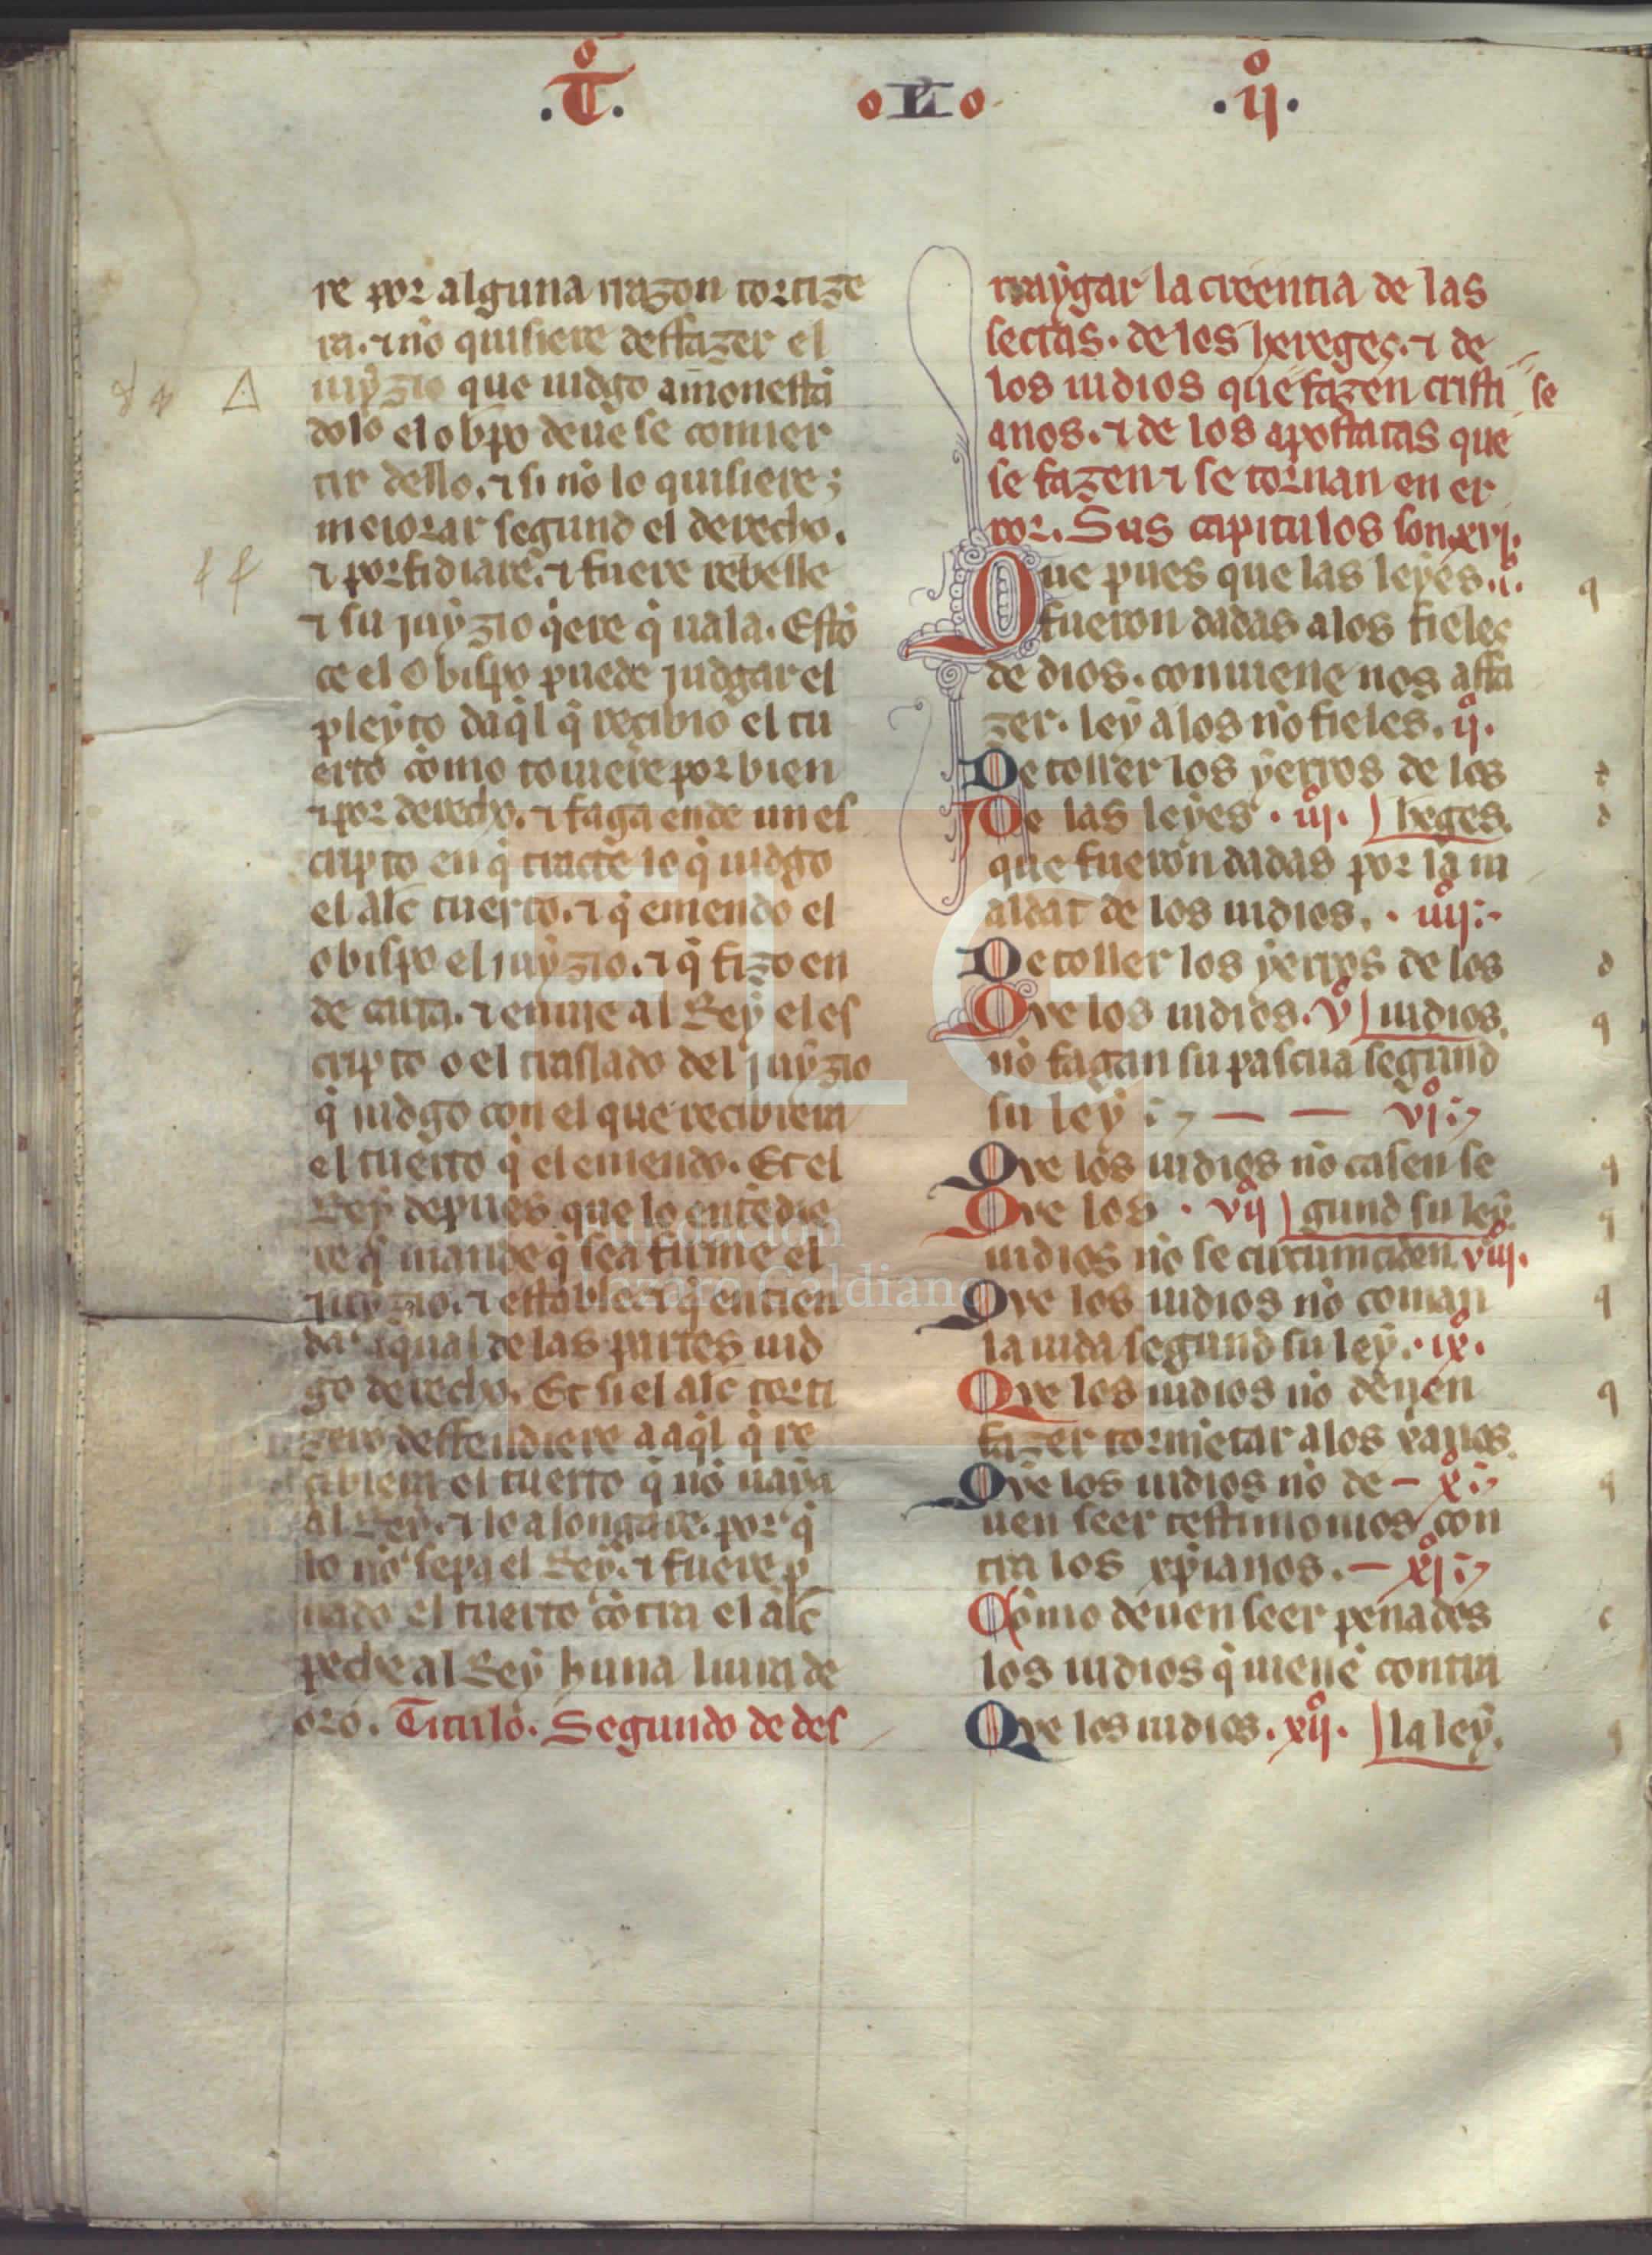 .T̊. o L o .ij̊.
re por alguna rrazon tortize
ra. ⁊ no quisiere deffazer el
iuyzio que iudgo amonestā
dolo el obp̄o deue se conuer
tir dello. ⁊ si no lo quisiere;
meiorar segund el derecho.
⁊ porfidiare. ⁊ fuere rebelle
⁊ su juyzio q̇ere q̇ uala. Estō
ce el obispo puede judgar el
pleyto daq̇l q̇ recibio el tu
erto como touiere por bien
⁊ por derecho. ⁊ faga ende un es
cripto en q̇ tracte lo q̇ iudgo
el alc̄ tuerto. ⁊ q̇ emendo el
obispo el juyzio. ⁊ q̇ fizo en
de carta. ⁊ enuie al Rey el es
cripto o el traslado del juyzio
q̇ iudgo con el que recibiera
el tuerto q̇ el emendo. Et el
Rey depues que lo entēdie
re q̇ mande q̇ sea firme el
juyzio. ⁊ establecī q̇ entien
da qual de las partes iud
go derecho. Et si el alc̄ torti
zero deffendiere a aq̇l q̇ re
cibiera el tuerto q̇ no uaya
al Rey. ⁊ lo alongare. por q̇
lo no sepa el Rey. ⁊ fuere p̄
uado el tuerto cōtra el alc̄
peche al Rey huna liura de
oro. Titulo. Segundo de des
rraygar la creentia de las
sectas. de los hereges. ⁊ de
los iudios que fazen cristi se
anos. ⁊ de los apostatas que
se fazen ⁊ se tornan en er
ror. Sus capitulos son xvj.
Que pues que las leyes. i̊. q
fueron dadas alos fieles
de dios. conuiene nos affa
zer. ley alos no fieles. ij̊.
De toller los yerros de los d
De las leyes. iij̊. heges. d
que fueron dadas por la m
aldat de los iudios. . iiij̊.
De toller los yerros de los d
Que los iudios. v̊ iudios. q
no fagan su pascua segund
su ley — — vj̊.
Que los iudios no casen se q
Que los . vij̊ gund su ley. q
iudios no se circumciden. viij̊.
Que los iudios no coman q
la uida segund su ley. . ix̊.
Que los iudios no deuen q
fazer tormētar alos xanos.
Que los iudios no de — x̊. q
uen seer testimonios con
tra los xpianos. — xj̊.
Como deuen seer penados c
los iudios q̇ uienē contra
Que los iudios. xij̊. la ley. q
FLG
Fundación
Lázaro Galdiano